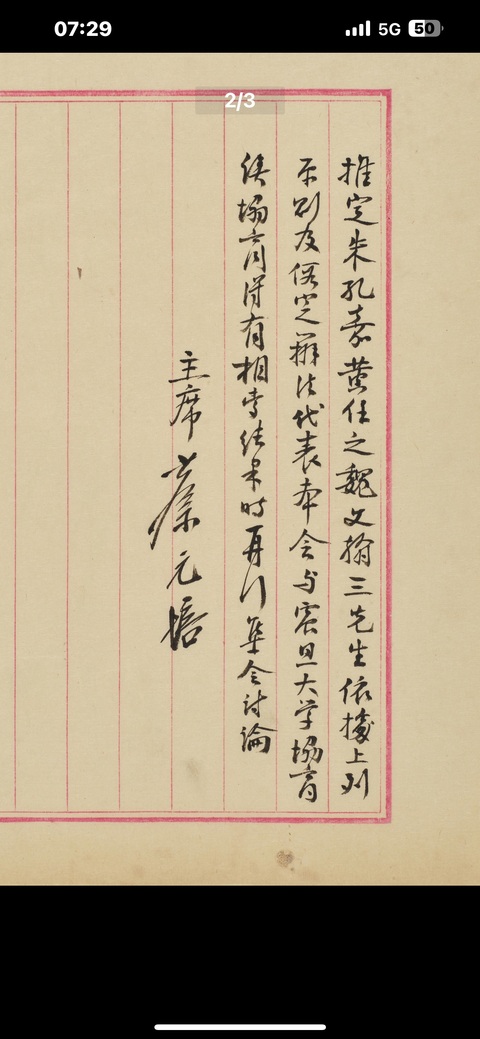 07:29
5G
50
2/3
推定朱孔嘉黄任之魏文翰三先生依據上列
原则及俗定辦法代表本会与震旦大学協商
俟協商得有相當结果时再行集会討論
主席 蔡元培